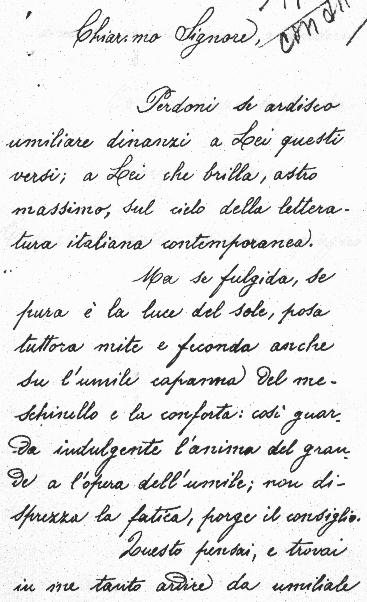 Chiar.mo Signore,
Perdoni se ardisco
umiliare dinanzi a Lei questi
versi; a Lei che brilla, astro
massimo, sul cielo della lettera-
tura italiana contemporanea.
Ma se fulgida, se
pura è la luce del sole, posa
tuttora mite e feconda anche
su l'umile capanna del me-
schinello e la conforta: così guar-
da indulgente l'anima del gran-
de a l'opera dell'umile; non di-
sprezza la fatica, porge il consiglio.
Questo pensai, e trovai
in me tanto ardire da umiliale